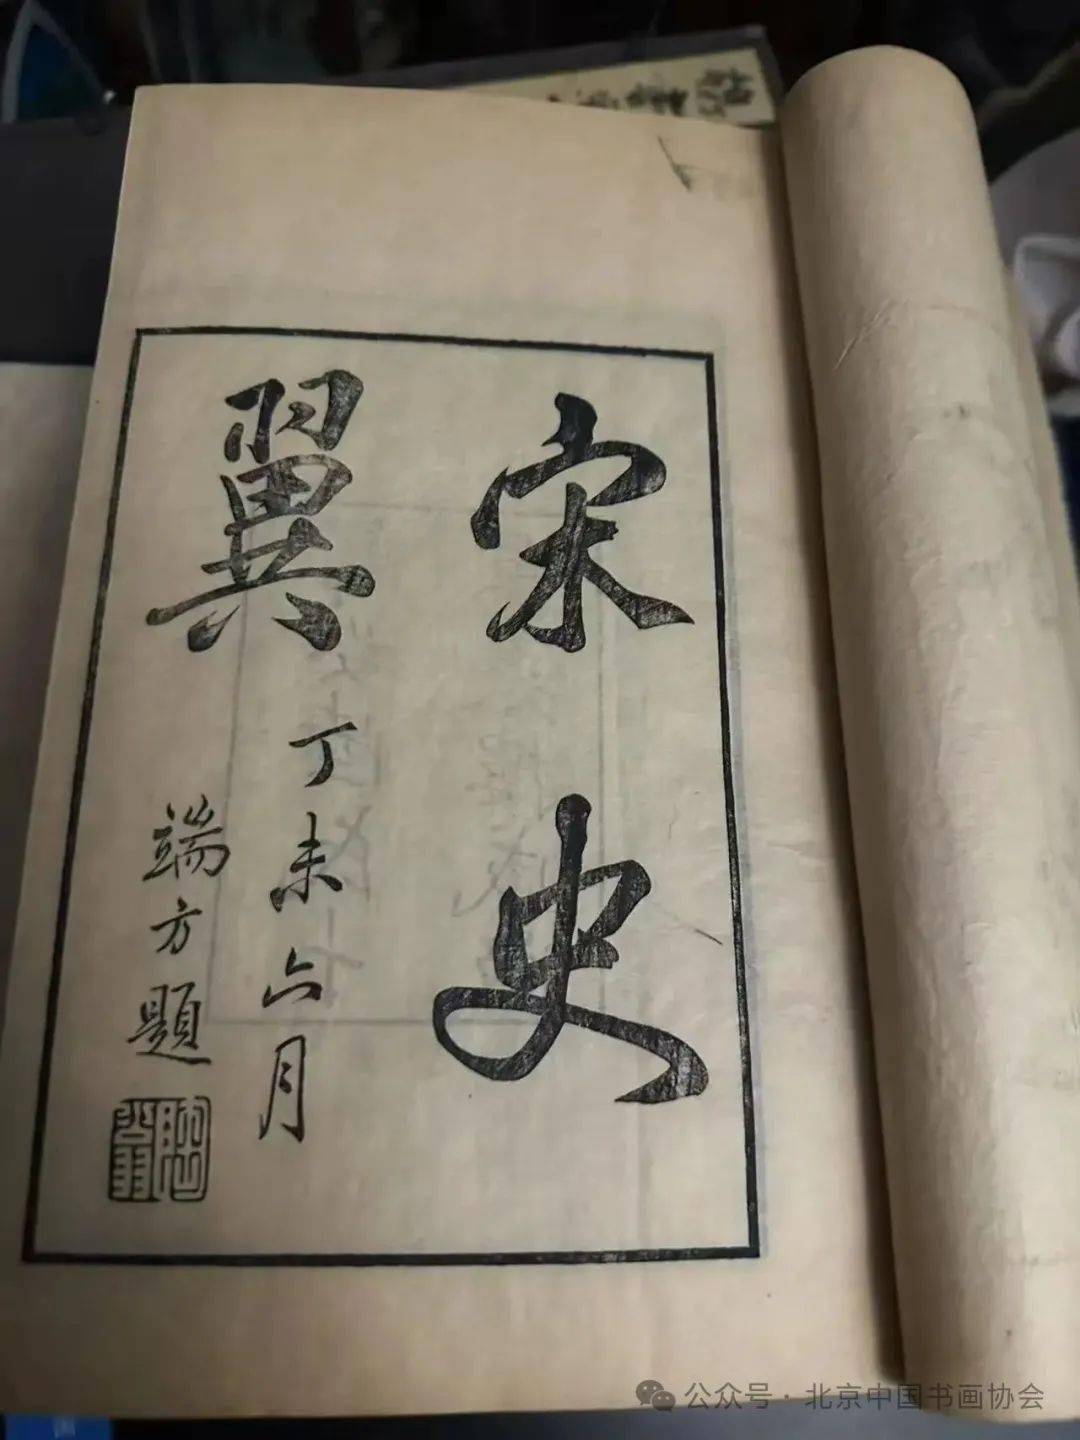 宋史
翼
丁未六月
端方題
公众号 · 北京中国书画协会